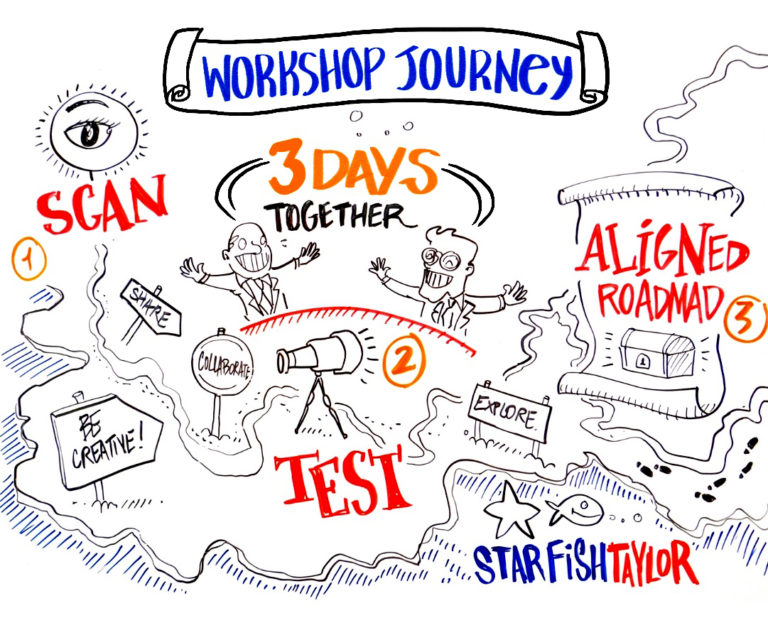 WORKSHOP JOURNEY
3 DAYS
TOGETHER
SCAN
1
SHARE
COLLABORATE
BE
CREATIVE!
2
TEST
EXPLORE
ALIGNED
ROADMAD
3
STARFISHTAYLOR